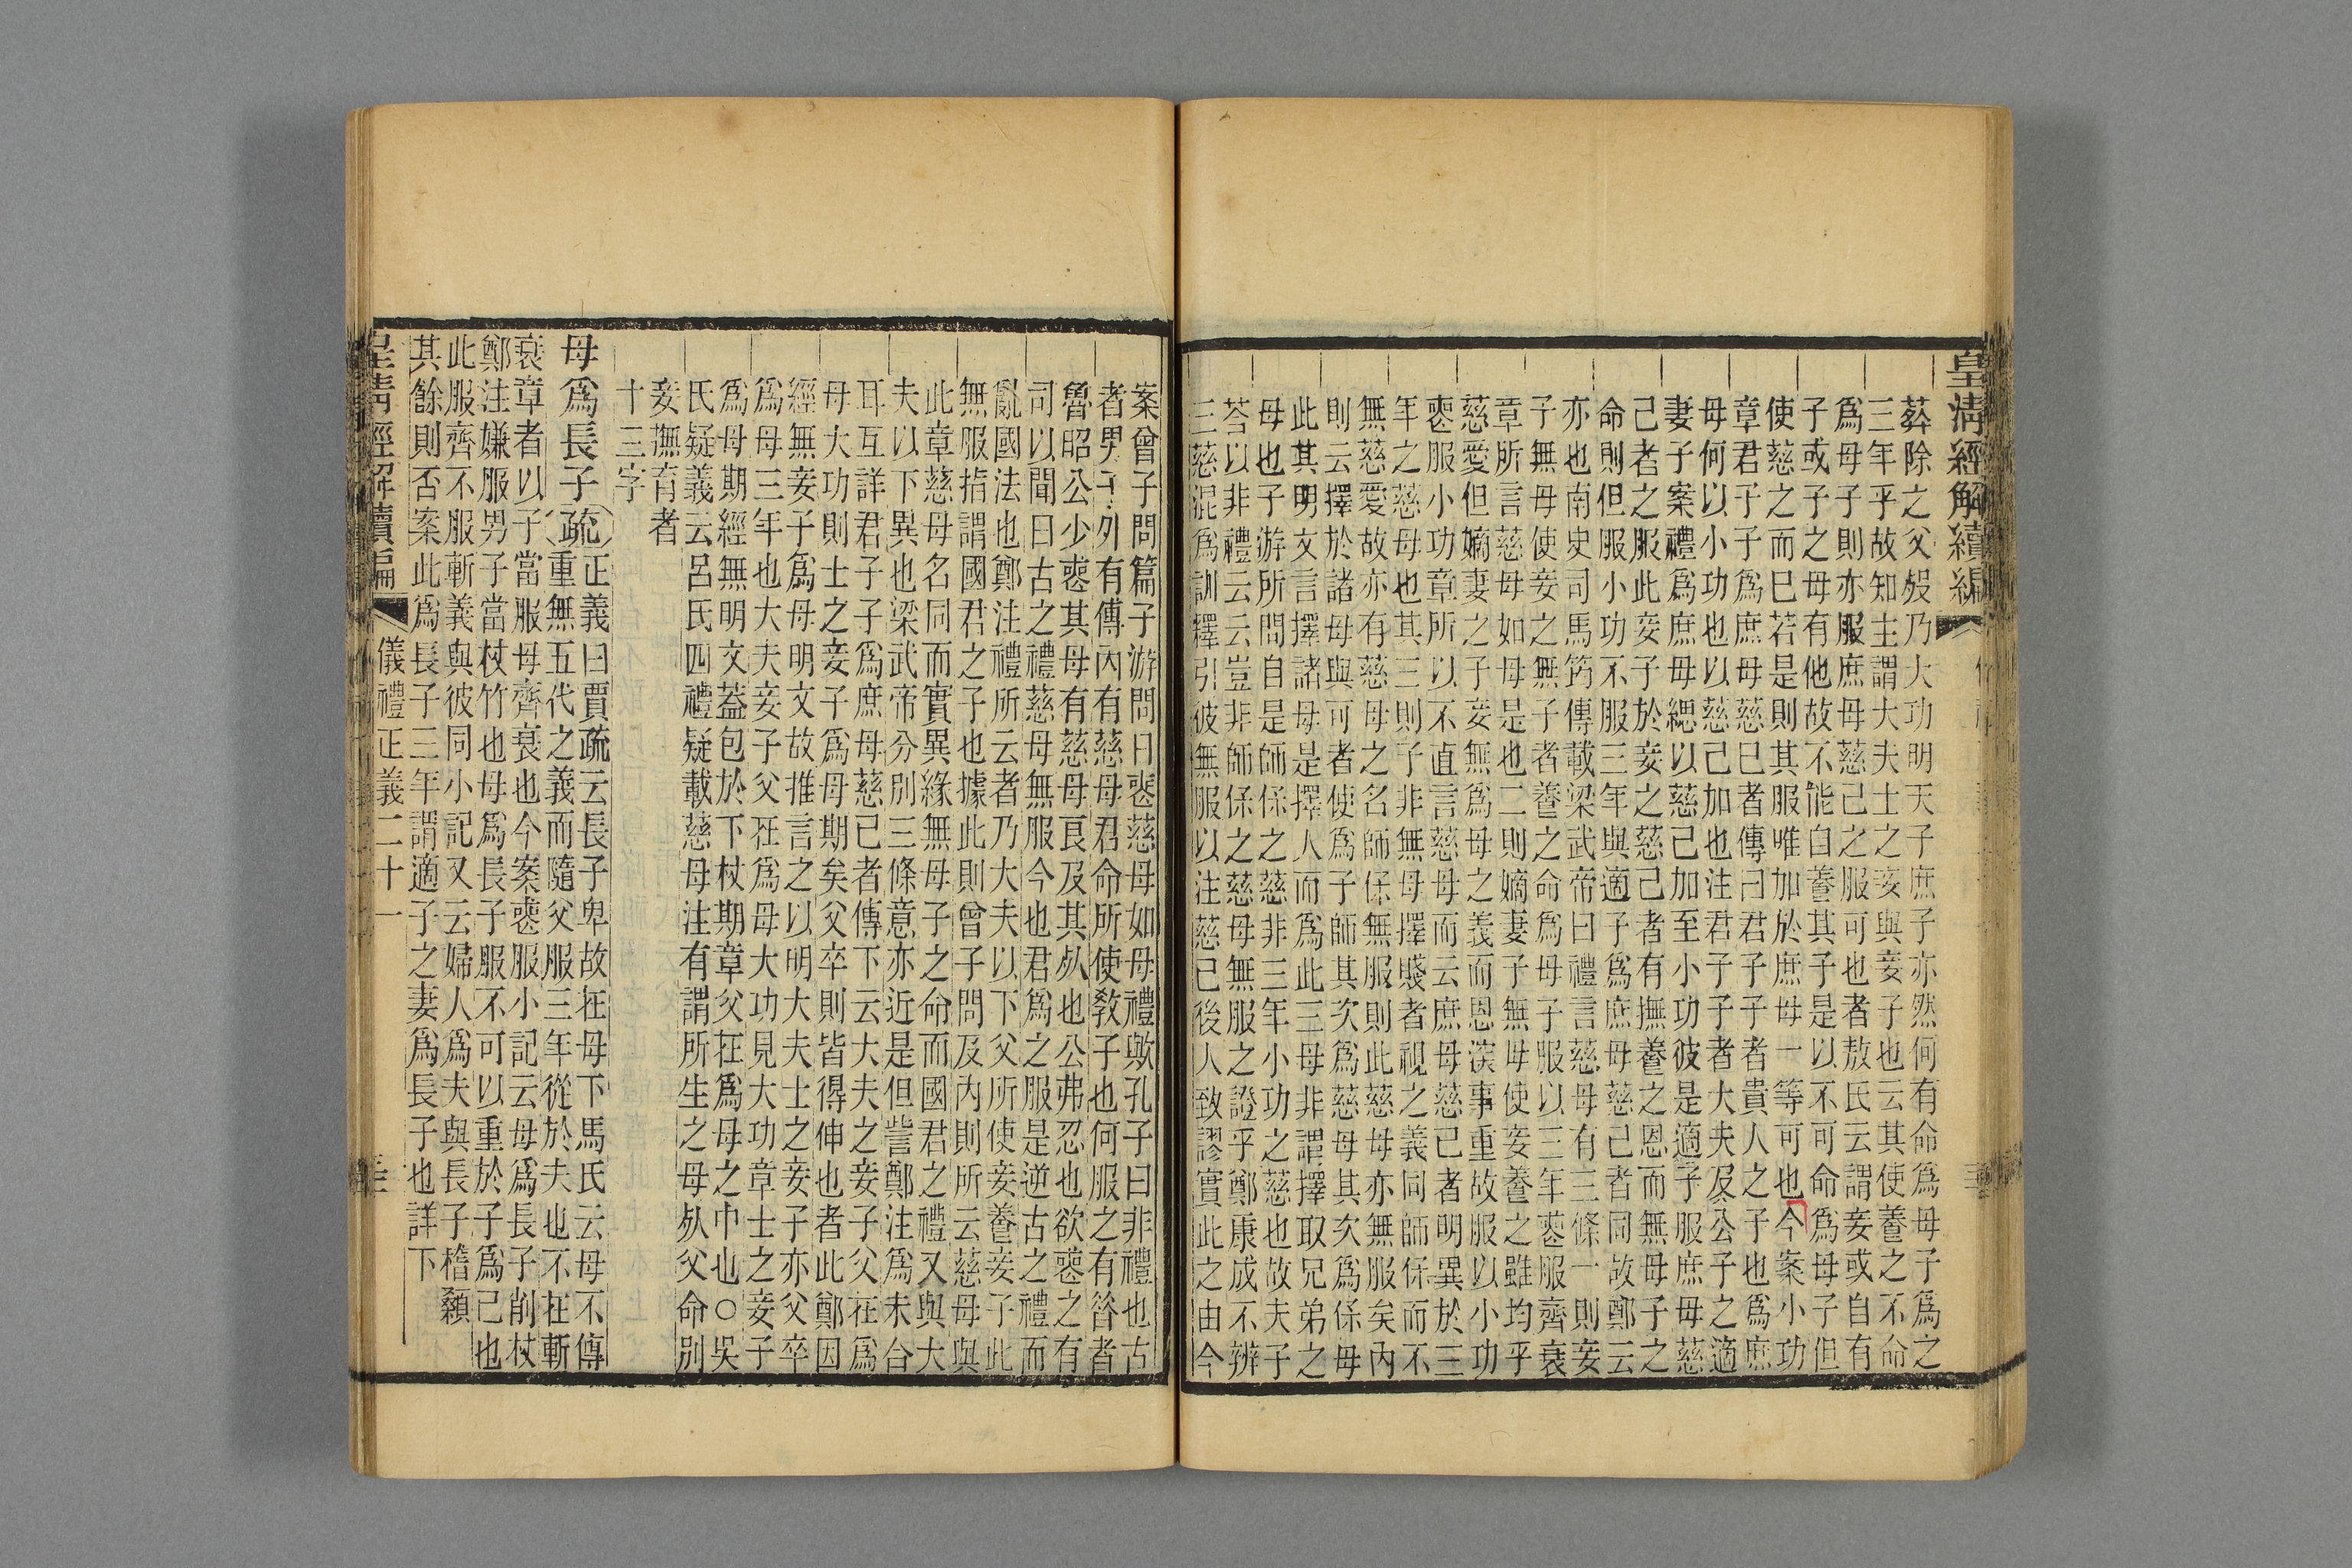 皇清經解續編
葬除之父歿乃大功明天子庶子亦然何有命爲母子爲之
三年乎故知主謂大夫士之妾與妾子也云其使養之不命
爲母子則亦服庶母慈己之服可也者敖氏云謂妾或自有
子或子之母有他故不能自養其子是以不可命爲母子但
使慈之而已若是則其服唯加於庶母一等可也今案小功
章君子子爲庶母慈己者傳曰君子子者貴人之子也爲庶
母何以小功也以慈己加也注君子子者大夫及公子之適
妻子案禮爲庶母緦以慈己加至小功彼是適子服庶母慈
己者之服此妾子於妾之慈己者有撫養之恩而無母子之
命則但服小功不服三年與適子爲庶母慈己者同故鄭云
亦也南史司馬筠傳載梁武帝曰禮言慈母有三條一則妾
子無母使妾之無子者養之命爲母子服以三年喪服齊衰
章所言慈母如母是也二則嫡妻子無母使妾養之雖均乎
慈愛但嫡妻之子妾無爲母之義而恩深事重故服以小功
喪服小功章所以不直言慈母而云庶母慈已者明異於三
年之慈母也其三則子非無母擇賤者視之義同師保而不
無慈愛故亦有慈母之名師保無服則此慈母亦無服矣內
則云擇於諸母與可者使爲子師其次爲慈母其次爲保母
此其明文言擇諸母是擇人而爲此三母非謂擇取兄弟之
母也子游所問自是師保之慈非三年小功之慈也故夫子
荅以非禮云云豈非師保之慈母無服之證乎鄭康成不辨
三慈混爲訓釋引彼無服以注慈已後人致謬實此之由今
案曾子問篇子游問曰喪慈母如母禮歟孔子曰非禮也古
者男子外有傅內有慈母君命所使敎子也何服之有昝者
魯昭公少喪其母有慈母良及其死也公弗忍也欲喪之有
司以聞曰古之禮慈母無服今也君爲之服是逆古之禮而
亂國法也鄭注禮所云者乃大夫以下父所使妾養妾子此
無服指謂國君之子也據此則曾子問及內則所云慈母與
此章慈母名同而實異緣無母子之命而國君之禮又與大
夫以下異也梁武帝分別三條意亦近是但訾鄭注爲未合
耳互詳君子子爲庶母慈已者傳下云大夫之妾子父在爲
母大功則士之妾子爲母期矣父卒則皆得伸也者此鄭因
經無妾子爲母明文故推言之以明大夫士之妾子亦父卒
爲母三年也大夫妾子父在爲母大功見大功章士之妾子
爲母期經無明文蓋包於下杖期章父在爲母之中也○吳
氏疑義云呂氏四禮疑載慈母注有謂所生之母死父命別
妾撫育者
十三字
母爲長子疏正義曰賈疏云長子卑故在母下馬氏云母不傳
重無五代之義而隨父服三年從於夫也不在斬
衰章者以子當服母齊衰也今案喪服小記云母爲長子削杖
鄭注嫌服男子當杖竹也母爲長子服不可以重於子爲己也
此服齊不服斬義與彼同小記又云婦人爲夫與長子稽顙
其餘則否案此爲長子三年謂適子之妻爲長子也詳下
皇清經解續編 儀禮正義二十一